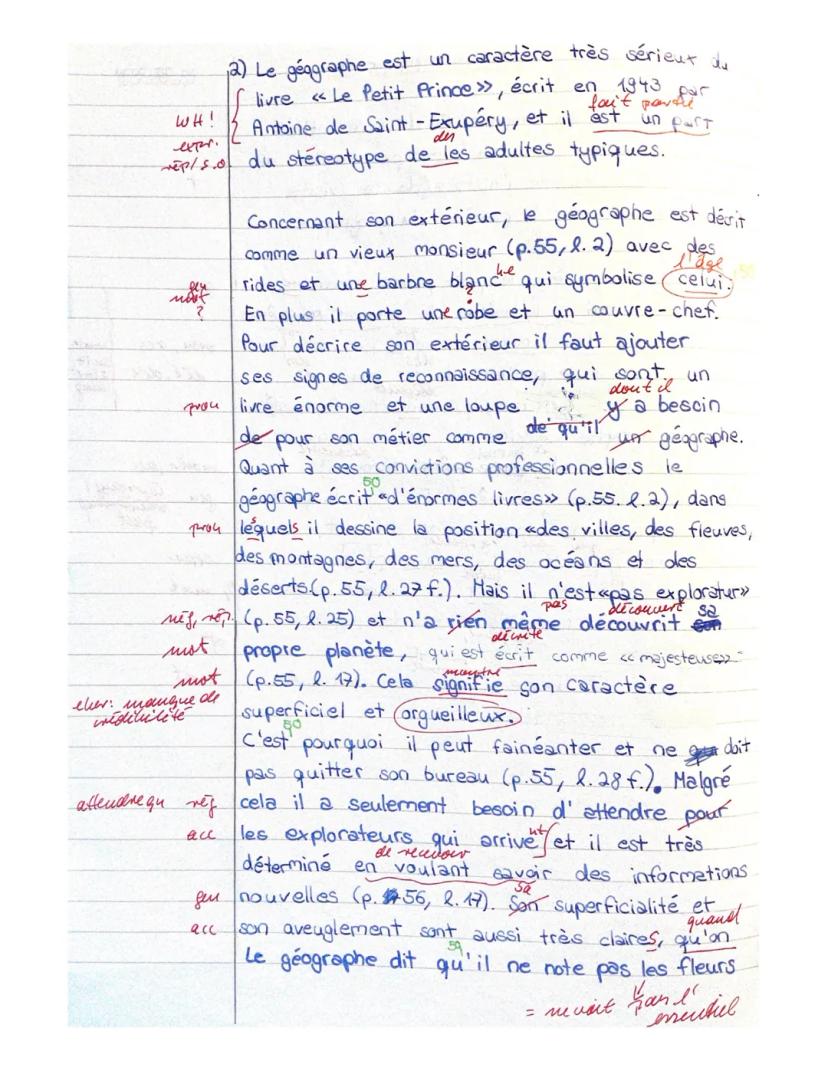 2) Le géographe est un caractère très sérieux du
livre « Le Petit Prince », écrit en 1943 par
fait partie
WH! Antoine de Saint-Exupéry, et il est un part
expr. des
rép/s.o du stéreotype de les adultes typiques.
Concernant son extérieur, le géographe est décrit
comme un vieux monsieur (p.55, l. 2) avec des
l'âge
rides et une barbre blanche qui symbolise celui.
gen
mot
? En plus il porte une robe et un couvre-chef.
Pour décrire son extérieur il faut ajouter
ses signes de reconnaissance, qui sont un
dont il
pron livre énorme et une loupe y a besoin
de pour son métier comme de qu'il un géographe.
Quant à ses convictions professionnelles le
50
géographe écrit «d'énormes livres» (p.55. l.2), dans
pron lesquels il dessine la position «des villes, des fleuves,
des montagnes, des mers, des océans et des
déserts (p. 55, l. 27 f.). Mais il n'est «pas explorateur»
pas découvert sa
nég, rép. (p. 55, l. 25) et n'a rien même découvrit son
décrite
mot propre planète, qui est écrit comme «majesteuse»
montre
mot (p.55, l. 17). Cela signifie son caractère
eher: manque de
crédibilité
superficiel et orgueilleux.
50
C'est pourquoi il peut fainéanter et ne doit
pas quitter son bureau (p.55, l. 28 f.). Malgré
attendre qn rég cela il a seulement besoin d'attendre pour
acc les explorateurs qui arrivent et il est très
de recevoir
déterminé en voulant savoir des informations
sa
gen nouvelles (p. 56, l. 17). Son superficialité et
quand
acc son aveuglement sont aussi très claires, qu'on
50
Le géographe dit qu'il ne note pas les fleurs
= ne voit pas l'
essentiel